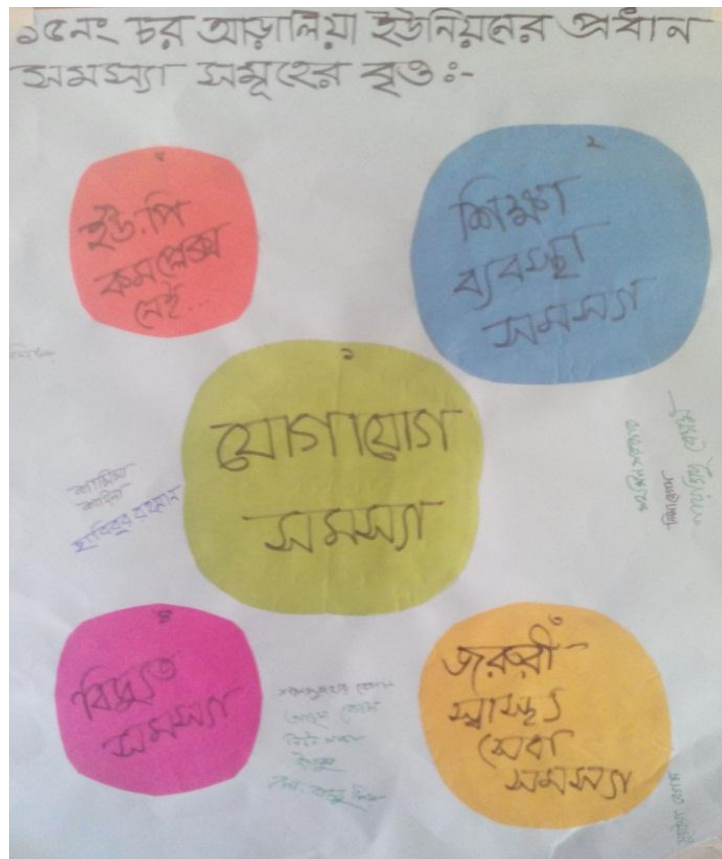 ১৫নং চর আড়ালিয়া ইউনিয়নের প্রধান
সমস্যা সমূহের বৃও ঃ-
৫
ইউ.পি
কমপ্লেক্স
নেই...
২
শিক্ষা
ব্যবস্থা
সমস্যা
১
যোগাযোগ
সমস্যা
হাবিবুর রহমান
৪
বিদ্যুত
সমস্যা
৩
জরুরী
স্বাস্থ্য
সেবা
সমস্যা